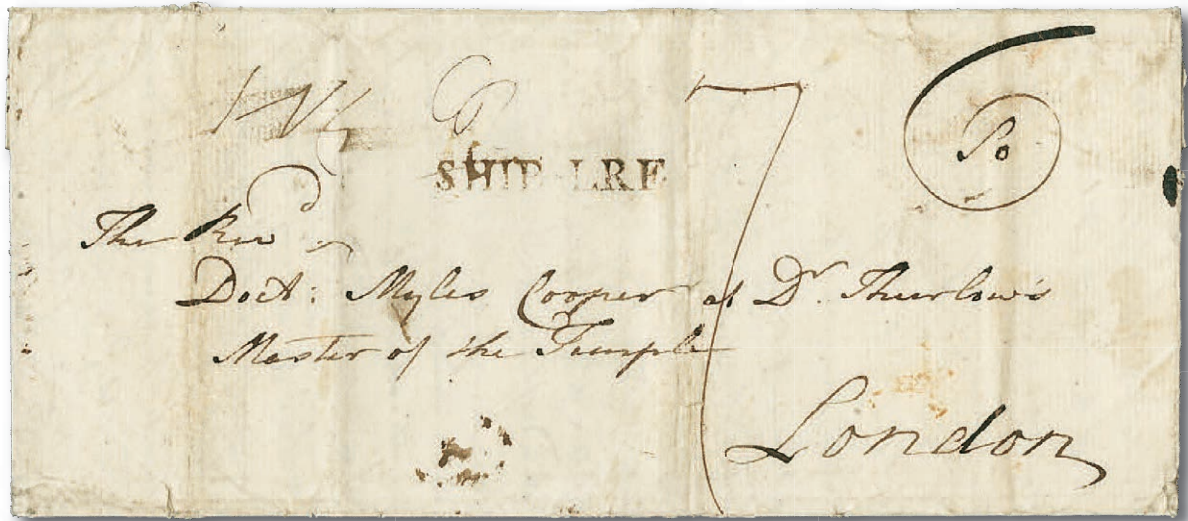 SHIP LRE
Po
The Revd
Doct: Myles Cooper at Dr. Thurlow's
Master of the Temple
London